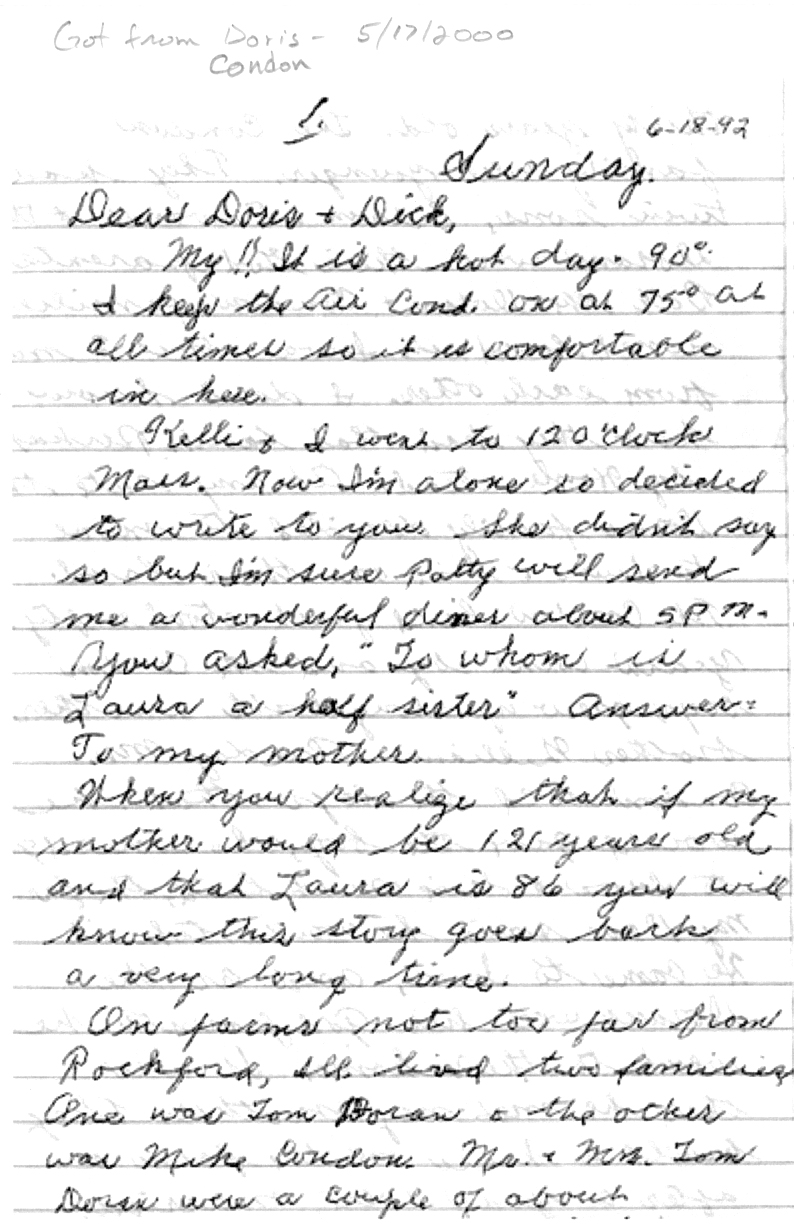 Got from Doris - 5/17/2000
Condon
1.
6-18-92
Sunday.
Dear Doris + Dick,
My!! It is a hot day. 90°.
I keep the Air Cond. on at 75° at
all times so it is comfortable
in here.
Kelli & I went to 12 O'Clock
Mass. Now I'm alone so decided
to write to you. She didn't say
so but I'm sure Patty will send
me a wonderful diner about 5 P.M.
You asked, "To whom is
Laura a half sister" Answer:
To my mother.
When you realize that if my
mother would be 121 years old
and that Laura is 86 you will
know this story goes back
a very long time.
On farms not too far from
Rockford, Ill. lived two families
One was Tom Doran & the other
was Mike Condon. Mr. & Mrs. Tom
Doran were a couple of about